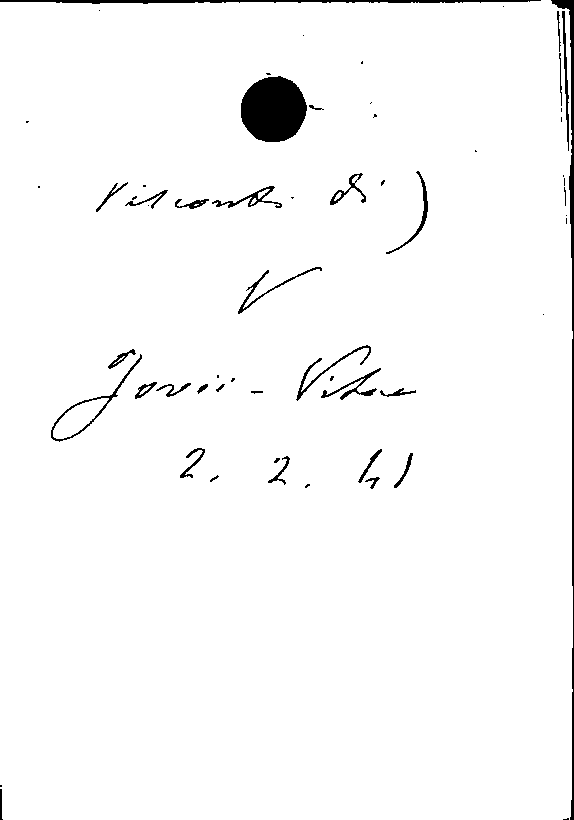 Visconti di)
V
Jovii - Vitae
2. 2. 41